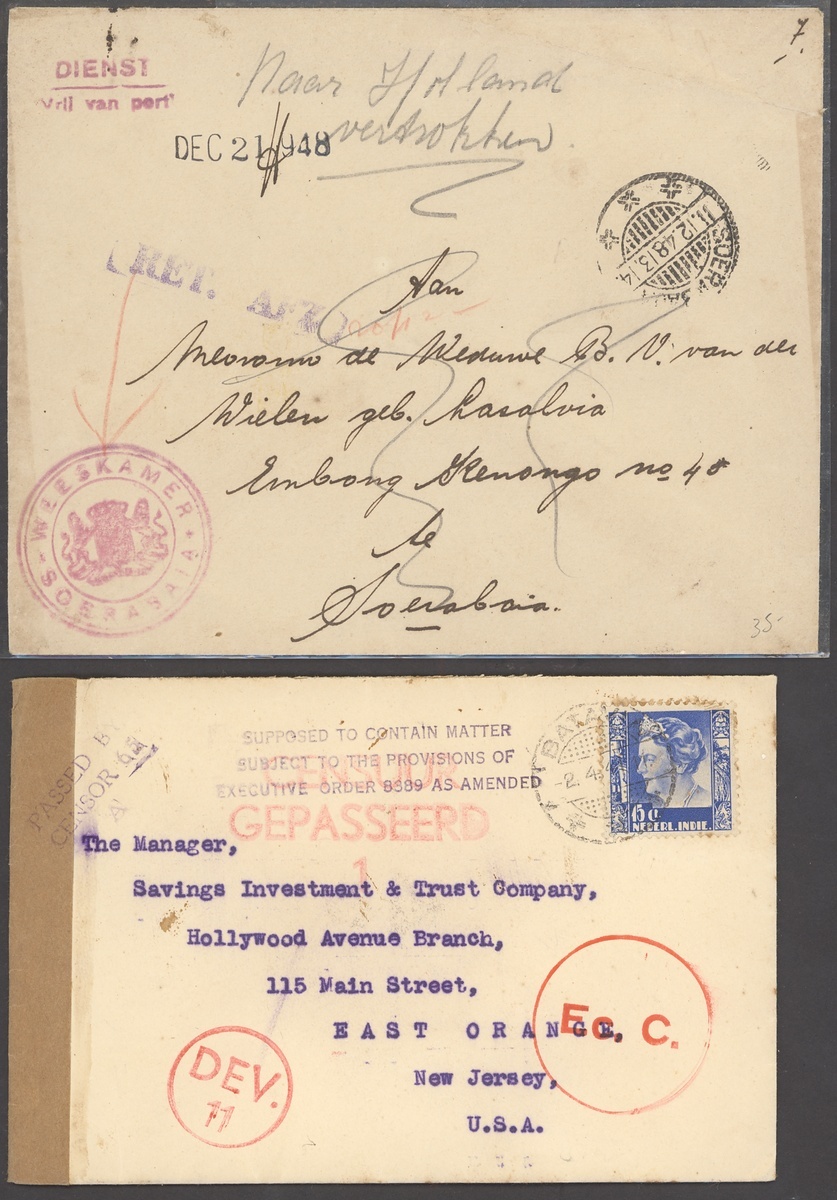 7.
DIENST
"Vrij van port"
Naar Holland
vertrokken.
DEC 21 1948
11.12.48.13-14
SOERABAJA
RET. AFZ.
Aan
Mevrouw de Weduwe B. V. van der
Wielen geb. Kasalvia
Embong Kenongo no 48
te
Soerabaia.
WEESKAMER
SOERABAIA
35-
PASSED BY
CENSOR
SUPPOSED TO CONTAIN MATTER
SUBJECT TO THE PROVISIONS OF
EXECUTIVE ORDER 8389 AS AMENDED
CENSUUR
GEPASSEERD
1
15 c.
NEDERL.INDIE.
The Manager,
Savings Investment & Trust Company,
Hollywood Avenue Branch,
115 Main Street,
EAST ORANGE,
New Jersey,
U.S.A.
Ec. C.
DEV.
11